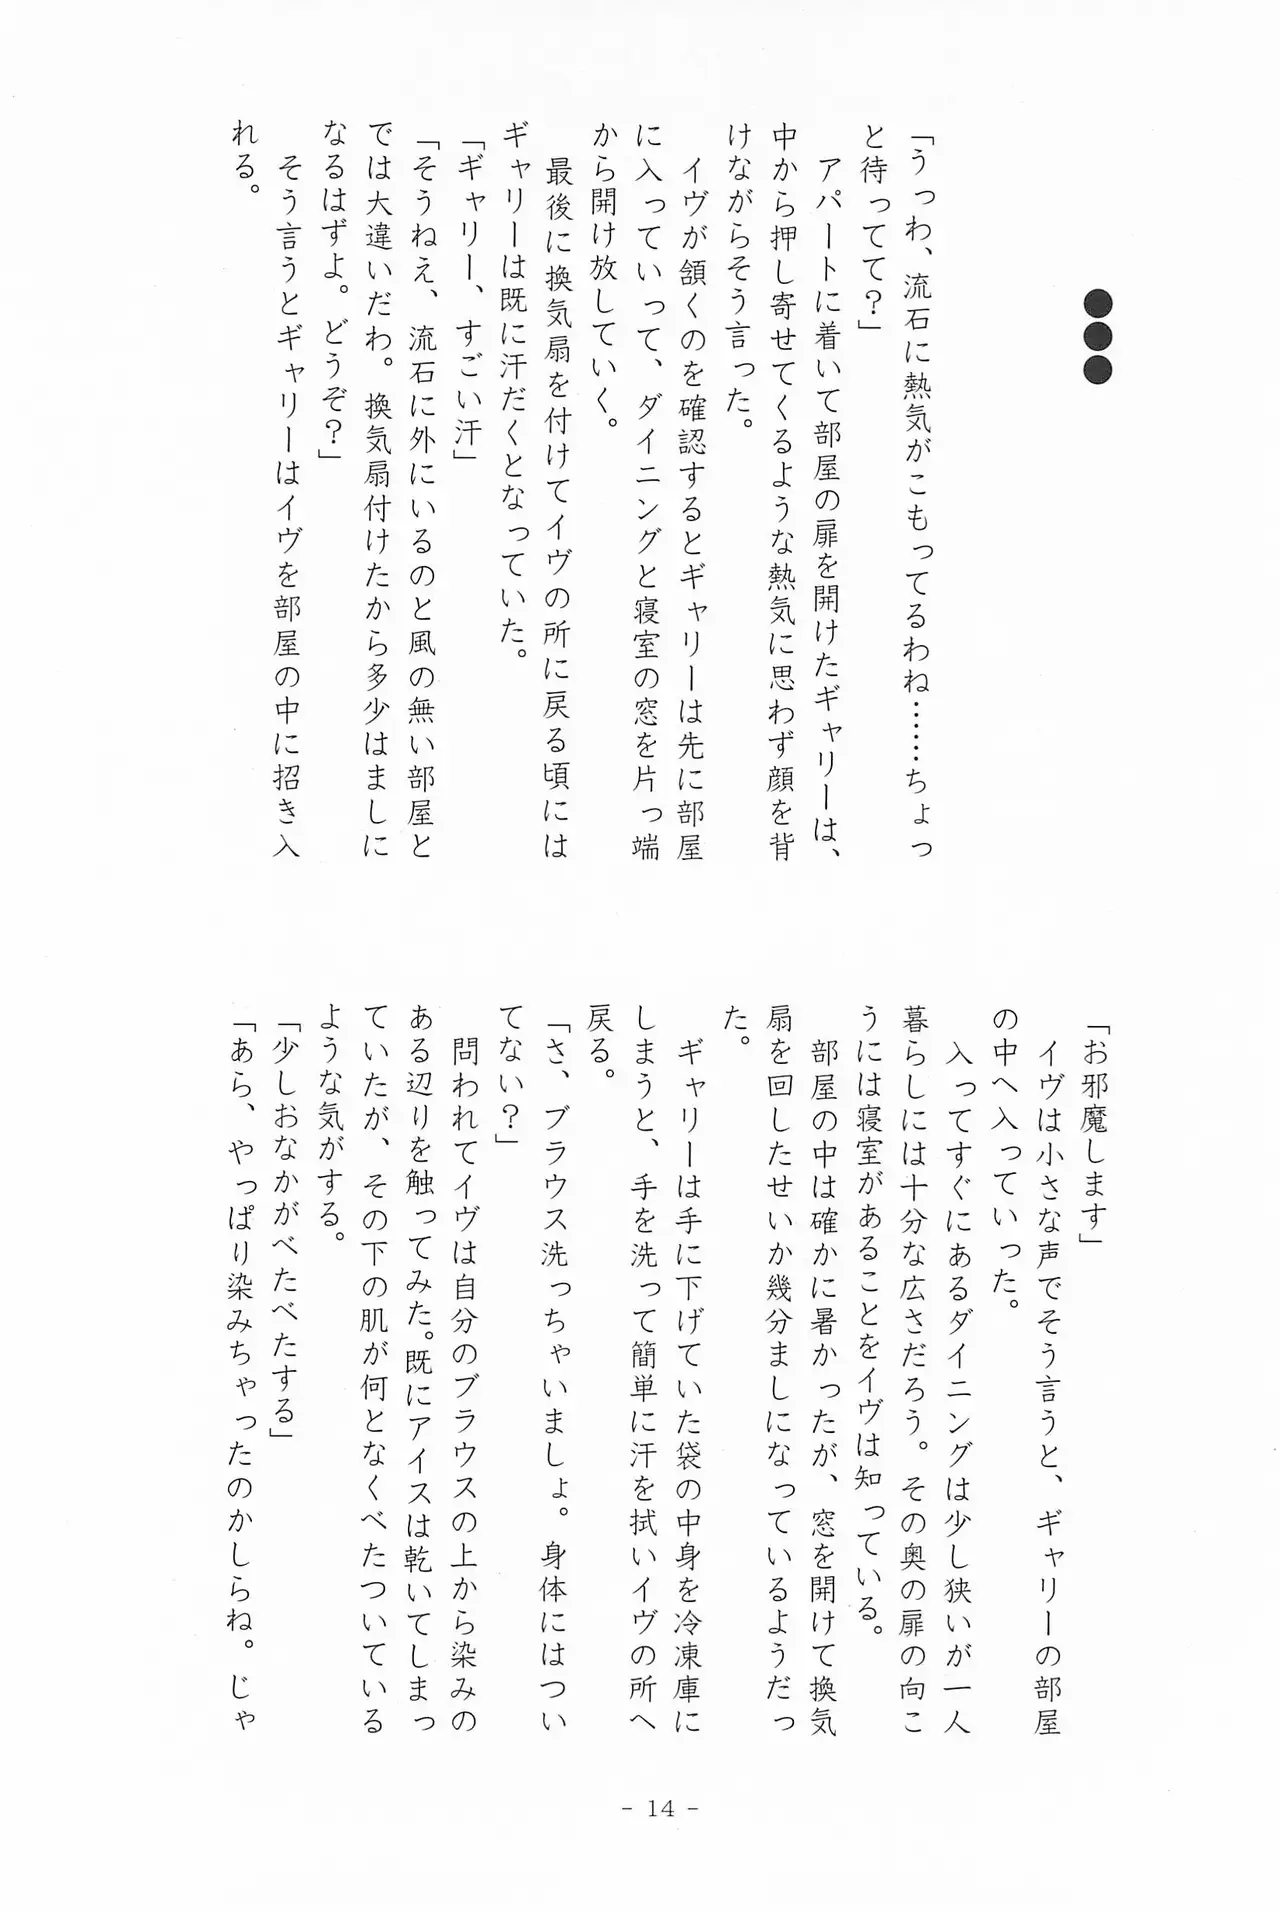 ●●●
「うっわ、流石に熱気がこもってるわね……ちょっ
と待ってて？」
　アパートに着いて部屋の扉を開けたギャリーは、
中から押し寄せてくるような熱気に思わず顔を背
けながらそう言った。
　イヴが頷くのを確認するとギャリーは先に部屋
に入っていって、ダイニングと寝室の窓を片っ端
から開け放していく。
　最後に換気扇を付けてイヴの所に戻る頃には
ギャリーは既に汗だくとなっていた。
「ギャリー、すごい汗」
「そうねえ、流石に外にいるのと風の無い部屋と
では大違いだわ。換気扇付けたから多少はましに
なるはずよ。どうぞ？」
　そう言うとギャリーはイヴを部屋の中に招き入
れる。
「お邪魔します」
　イヴは小さな声でそう言うと、ギャリーの部屋
の中へ入っていった。
　入ってすぐにあるダイニングは少し狭いが一人
暮らしには十分な広さだろう。その奥の扉の向こ
うには寝室があることをイヴは知っている。
　部屋の中は確かに暑かったが、窓を開けて換気
扇を回したせいか幾分ましになっているようだっ
た。
　ギャリーは手に下げていた袋の中身を冷凍庫に
しまうと、手を洗って簡単に汗を拭いイヴの所へ
戻る。
「さ、ブラウス洗っちゃいましょ。身体にはつい
てない？」
　問われてイヴは自分のブラウスの上から染みの
ある辺りを触ってみた。既にアイスは乾いてしまっ
ていたが、その下の肌が何となくべたついている
ような気がする。
「少しおなかがべたべたする」
「あら、やっぱり染みちゃったのかしらね。じゃ
- 14 -